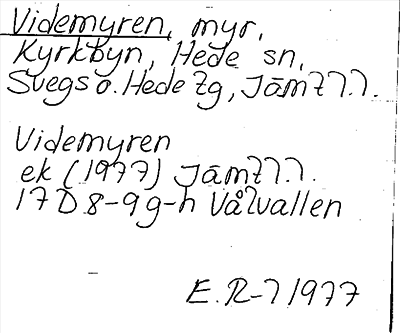 Videmyren, myr,
Kyrkbyn, Hede sn,
Svegs o. Hede tg, Jämtl.l.
Videmyren
ek (1977) Jämtl.l.
17D 8-9g-h Vålvallen
E.R-71977